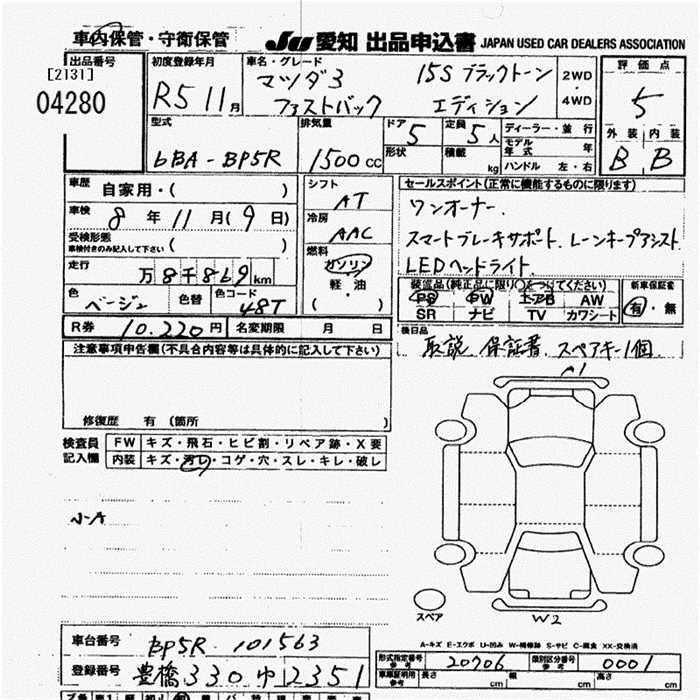 車内保管・守衛保管
JU 愛知 出品申込書 JAPAN USED CAR DEALERS ASSOCIATION
出品番号
[2131]
04280
初度登録年月
R5 11月
車名・グレード
マツダ3 15S ブラックトーン
ファストバック エディション
2WD
4WD
評価点
5
外装 内装
B B
型式
6BA-BP5R
排気量
1500cc
ドア 5
形状
定員 5人
積載 kg
ディーラー・並行
モデル年式 年
ハンドル 左・右
車歴 自家用・( )
車検 8年11月(9日)
受検形態
車検付きのみ記入して下さい ( )
走行 万8千869km
色 ベージュ 色替 色コード 48T
シフト
AT
冷房
AAC
燃料
ガソリン
軽・油
( )
セールスポイント(正常に機能するものに限ります)
ワンオーナー.
スマートブレーキサポート. レーンキープアシスト.
LEDヘッドライト.
装備品(純正品に限り○をつけてください)
PS PW エアB AW
SR ナビ TV カワシート
新車保証書
有・無
R券 10.220円 名変期限 月 日
後日品
取説. 保証書. スペアキー1個.
注意事項申告欄(不具合内容等は具体的に記入して下さい)
修復歴 有 (箇所 )
検査員記入欄
FW キズ・飛石・ヒビ割・リペア跡・X要
内装 キズ・汚レ・コゲ・穴・スレ・キレ・破レ
A1
スペア
W2
A-キズ E-エクボ U-凹み W-補修跡 S-サビ C-腐食 XX-交換済
車台番号 BP5R-101563
登録番号 豊橋 330 ゆ 2351
形式指定番号 参考 20706 類別区分番号 参考 0001
車庫証明用 参考 長さ cm 幅 cm 高さ cm